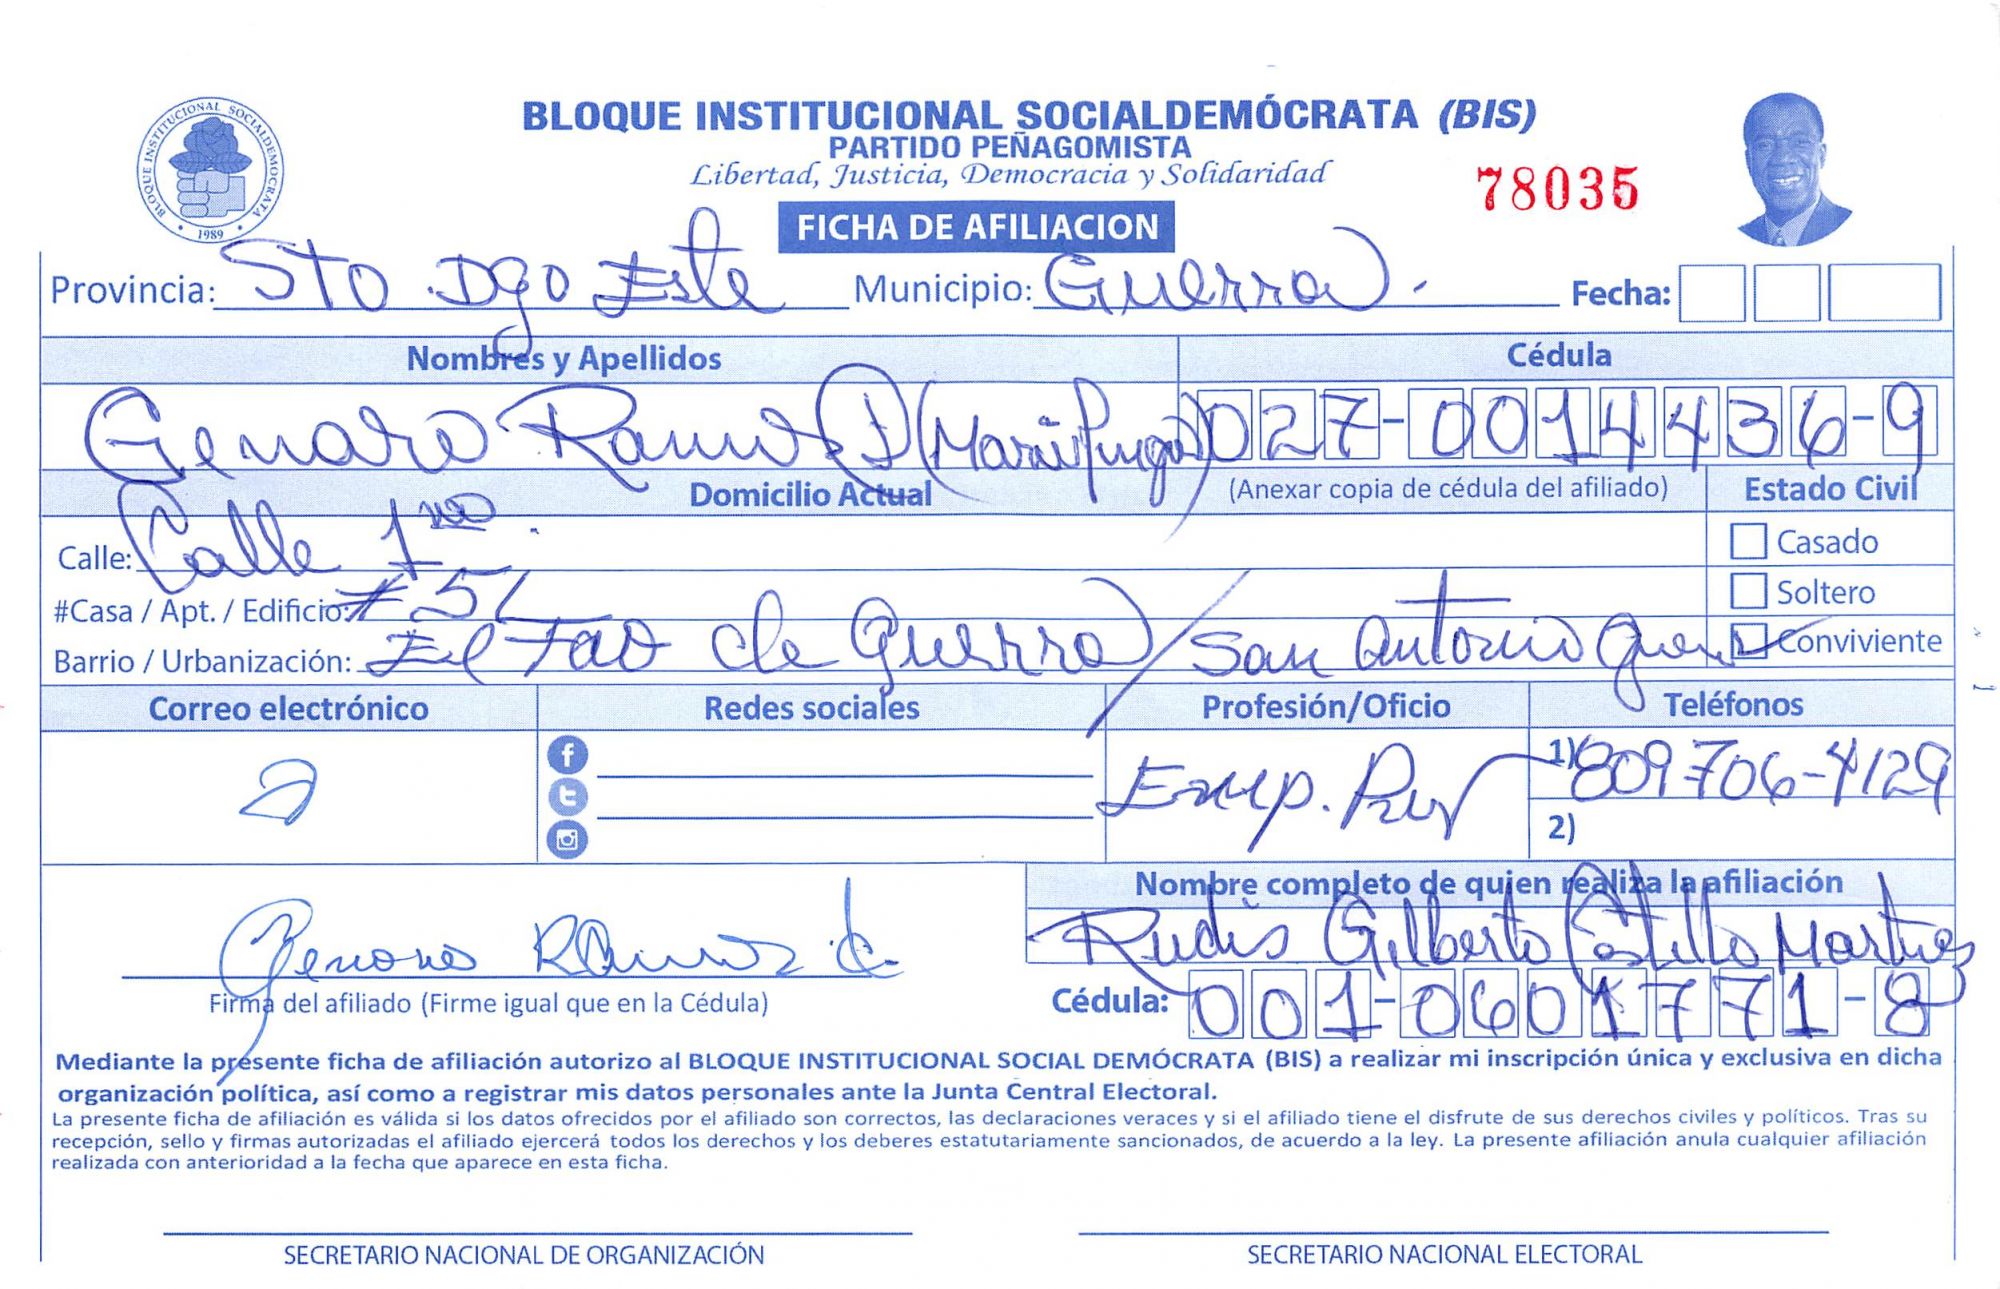 BLOQUE INSTITUCIONAL SOCIALDEMOCRATA
1989
BLOQUE INSTITUCIONAL SOCIALDEMÓCRATA (BIS)
PARTIDO PEÑAGOMISTA
Libertad, Justicia, Democracia y Solidaridad
78035
FICHA DE AFILIACION
Provincia: Sto Dgo Este Municipio: Guerra. Fecha:
Nombres y Apellidos Cédula
Genaro 027-0014436-9
Domicilio Actual (Anexar copia de cédula del afiliado) Estado Civil
Calle: Calle 1ra. Casado
#Casa / Apt. / Edificio: Soltero
Barrio / Urbanización: de Guerra / San Antonio Conviviente
Correo electrónico Redes sociales Profesión/Oficio Teléfonos
Emp. 1) 809 706-4129
2)
Nombre completo de quien realiza la afiliación
Rudis Gilberto Castillo Martinez
Firma del afiliado (Firme igual que en la Cédula) Cédula: 001-0601771-8
Mediante la presente ficha de afiliación autorizo al BLOQUE INSTITUCIONAL SOCIAL DEMÓCRATA (BIS) a realizar mi inscripción única y exclusiva en dicha
organización política, así como a registrar mis datos personales ante la Junta Central Electoral.
La presente ficha de afiliación es válida si los datos ofrecidos por el afiliado son correctos, las declaraciones veraces y si el afiliado tiene el disfrute de sus derechos civiles y políticos. Tras su
recepción, sello y firmas autorizadas el afiliado ejercerá todos los derechos y los deberes estatutariamente sancionados, de acuerdo a la ley. La presente afiliación anula cualquier afiliación
realizada con anterioridad a la fecha que aparece en esta ficha.
SECRETARIO NACIONAL DE ORGANIZACIÓN SECRETARIO NACIONAL ELECTORAL